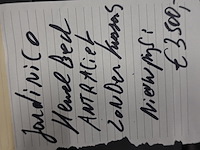 Jardinico
Hemel Bed
ANTRACiet
Zonder kussens
Nieuwprijs
€ 3500,-